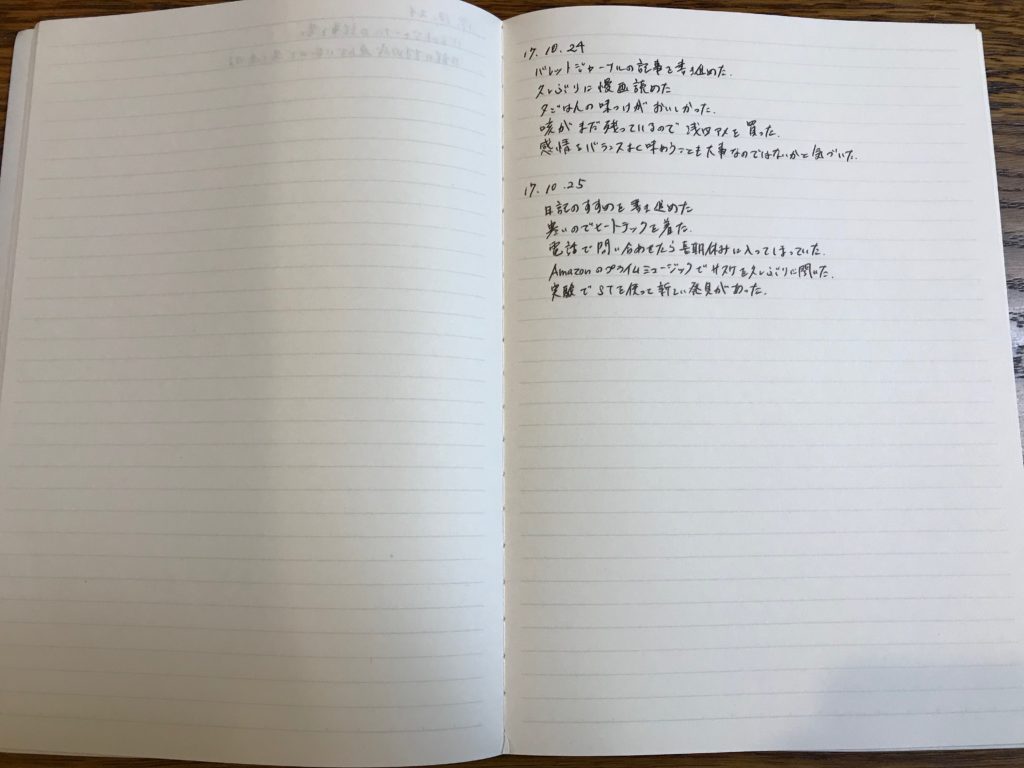 17.10.24
バレットジャーナルの記事を書き進めた.
久しぶりに漫画読めた
夕ごはんの味つけがおいしかった.
咳がまだ残っているので浅田アメを買った.
感情をバランスよく味わうことも大事なのではないかと気づいた.
17.10.25
日記のすすめを書き進めた
寒いのでヒートテックを着た.
電話で問い合わせたら長期休みに入ってしまっていた.
Amazonのプライムミュージックでサスケを久しぶりに聞いた.
実験でSTを使って新しい発見があった.